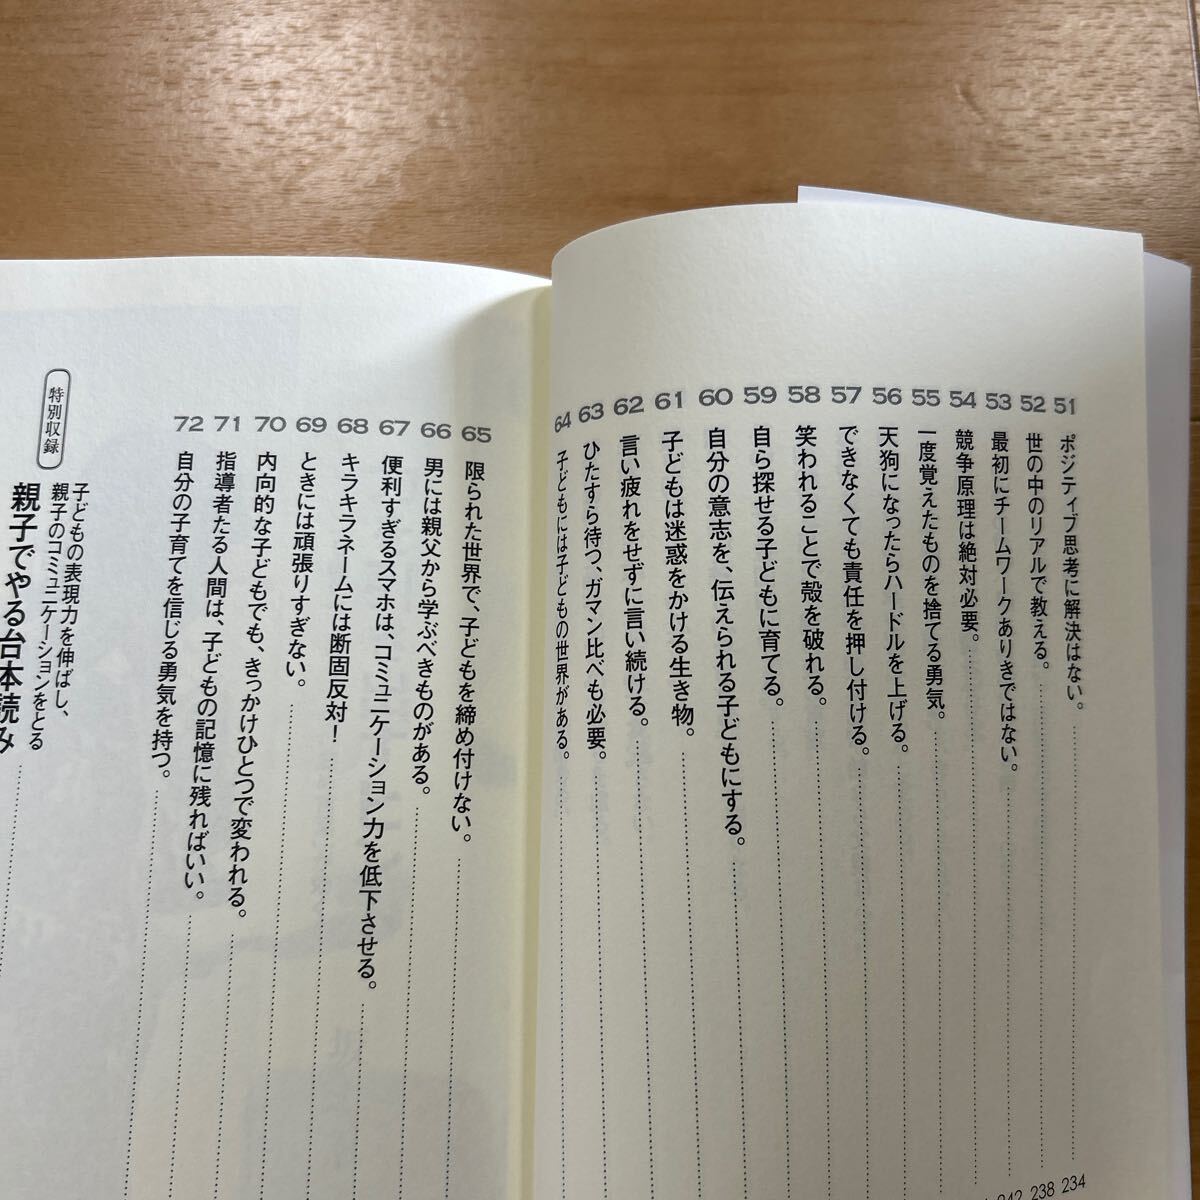 51 ポジティブ思考に解決はない。 234
52 世の中のリアルで教える。 238
53 最初にチームワークありきではない。 242
54 競争原理は絶対必要。
55 一度覚えたものを捨てる勇気。
56 天狗になったらハードルを上げる。
57 できなくても責任を押し付ける。
58 笑われることで殻を破れる。
59 自ら探せる子どもに育てる。
60 自分の意志を、伝えられる子どもにする。
61 子どもは迷惑をかける生き物。
62 言い疲れをせずに言い続ける。
63 ひたすら待つ、ガマン比べも必要。
64 子どもには子どもの世界がある。
65 限られた世界で、子どもを締め付けない。
66 男には親父から学ぶべきものがある。
67 便利すぎるスマホは、コミュニケーション力を低下させる。
68 キラキラネームには断固反対！
69 ときには頑張りすぎない。
70 内向的な子どもでも、きっかけひとつで変われる。
71 指導者たる人間は、子どもの記憶に残ればいい。
72 自分の子育てを信じる勇気を持つ。
特別収録
子どもの表現力を伸ばし、
親子のコミュニケーションをとる
親子でやる台本読み